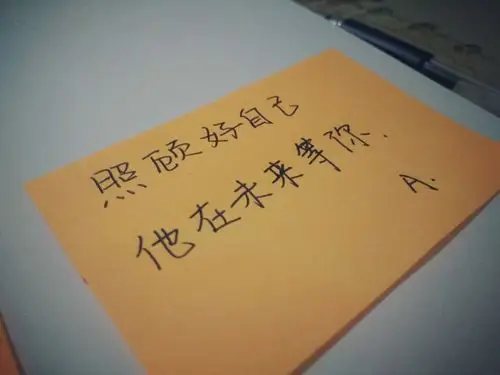 照顾好自己
他在未来等你.
A.